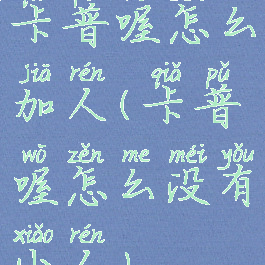 卡普喔怎么
jiā rén qiǎ pǔ
加人(卡普
wō zěn me méi yǒu
喔怎么没有
xiǎo rén
小人)